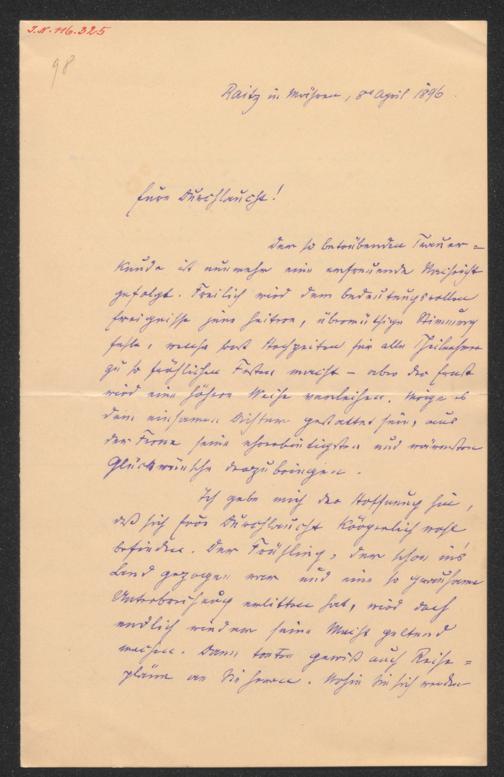 I.N. 116.325
98
Raitz in Mähren, 8ten April 1896.
Eure Durchlaucht!
Der so betrübenden Trauer-
kunde ist nunmehr eine erfreuende Nachricht
gefolgt. Freilich wird dem bedeutungsvollen
Ereignisse jene heitere, übermüthige Stimmung
fehlen, welche sonst Hochzeiten für alle Theilnehmer
zu so fröhlichen Festen macht – aber der Ernst
wird eine höhere Weihe verleihen. Möge es
dem einsamen Dichter gestattet sein, aus
der Ferne seine ehrerbietigsten und wärmsten
Glückwünsche darzubringen.
Ich gebe mich der Hoffnung hin,
daß sich Eure Durchlaucht körperlich wohl
befinden. Der Frühling, der schon ins
Land gezogen war und eine so grausame
Unterbrechung erlitten hat, wird doch
endlich wieder seine Macht geltend
machen. Dann treten gewiß auch Reise-
pläne an Sie heran. Wohin Sie sich wenden